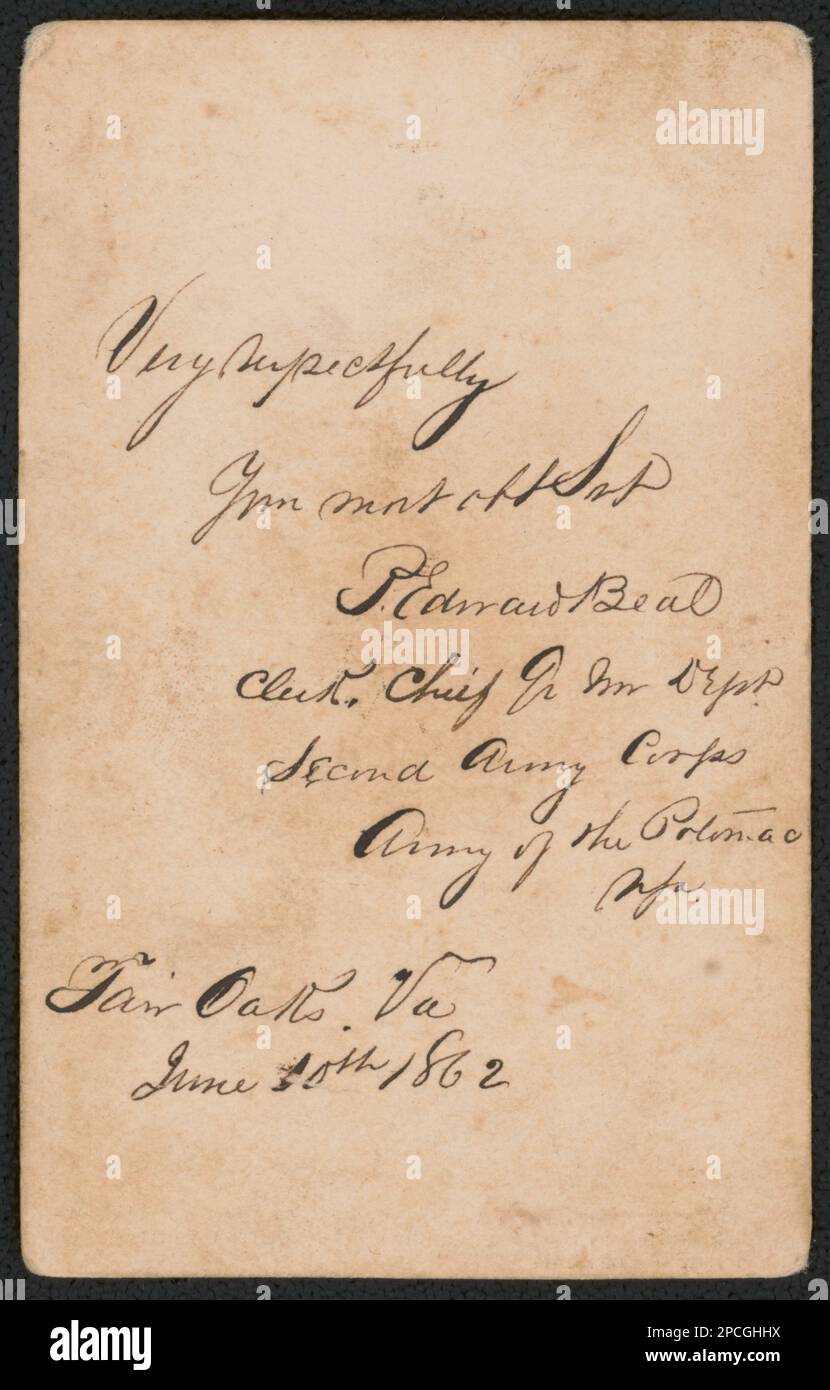 Very respectfully
Your most obt Svt
P. Edward Beal
Clerk. Chief Qr Mr Dept.
Second Army Corps
Army of the Potomac
Fair Oaks. Va
June 10th 1862
alamy
Image ID: 2PCGHHX
www.alamy.com